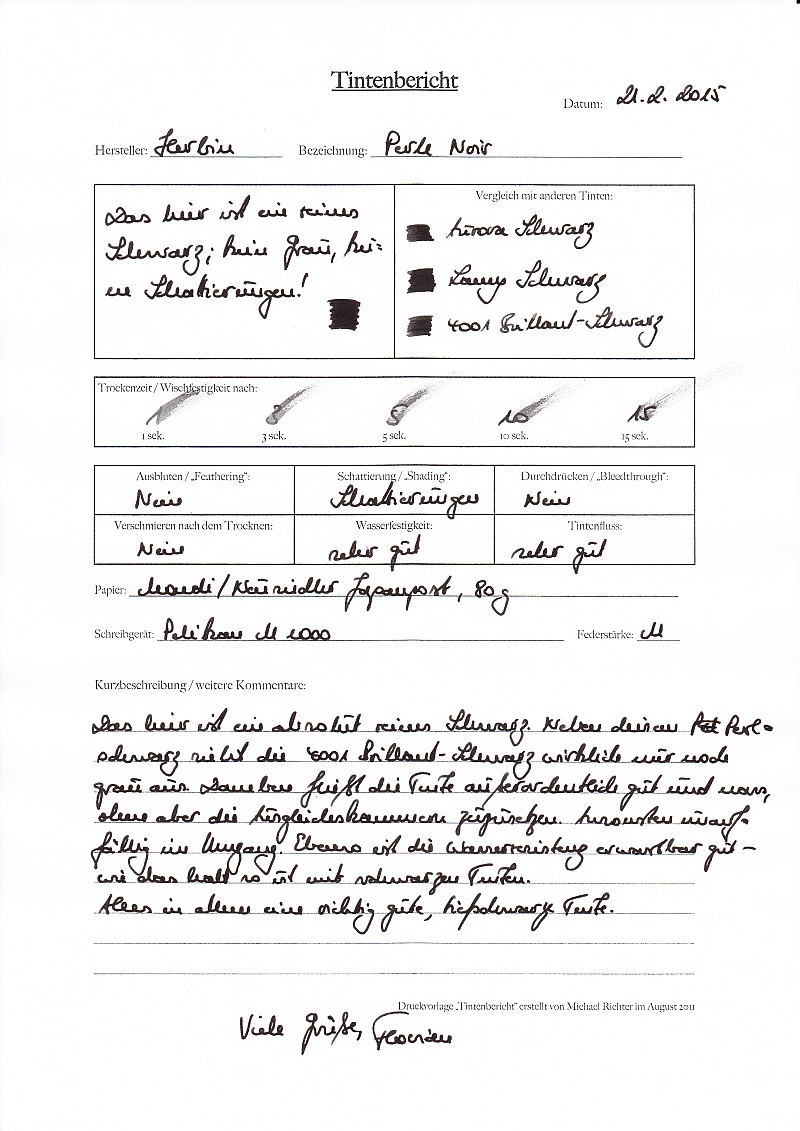 Tintenbericht
Datum: 21.2.2015
Hersteller: Herbin Bezeichnung: Perle Noir
Das hier ist ein reines
Schwarz; kein grau, kei=
ne Schattierungen!
Vergleich mit anderen Tinten:
Aurora Schwarz
Lamy Schwarz
4001 Brillant-Schwarz
Trockenzeit / Wischfestigkeit nach:
1 3 5 10 15
1 sek. 3 sek. 5 sek. 10 sek. 15 sek.
Ausbluten / „Feathering“: Schattierung / „Shading“: Durchdrücken / „Bleedthrough“:
Nein Schattierungen Nein
Verschmieren nach dem Trocknen: Wasserfestigkeit: Tintenfluss:
Nein sehr gut sehr gut
Papier: Mondi/Neusiedler Japanpost, 80g
Schreibgerät: Pelikan M 1000 Federstärke: M
Kurzbeschreibung / weitere Kommentare:
Das hier ist ein absolut reines Schwarz. Neben diesem Perl=
schwarz sieht die 4001 Brillant-Schwarz wirklich nur noch
grau aus. Daneben fließt die Tinte außerordentlich gut und nass,
ohne aber die zuzusetzen. Ansonsten unauf=
fällig im Umgang. Ebenso ist die erwartbar gut –
wie das halt so ist mit schwarzen Tinten.
Alles in allem eine richtig gute, tiefschwarze Tinte.
Druckvorlage „Tintenbericht“ erstellt von Michael Richter im August 2011
Viele Grüße, Florian